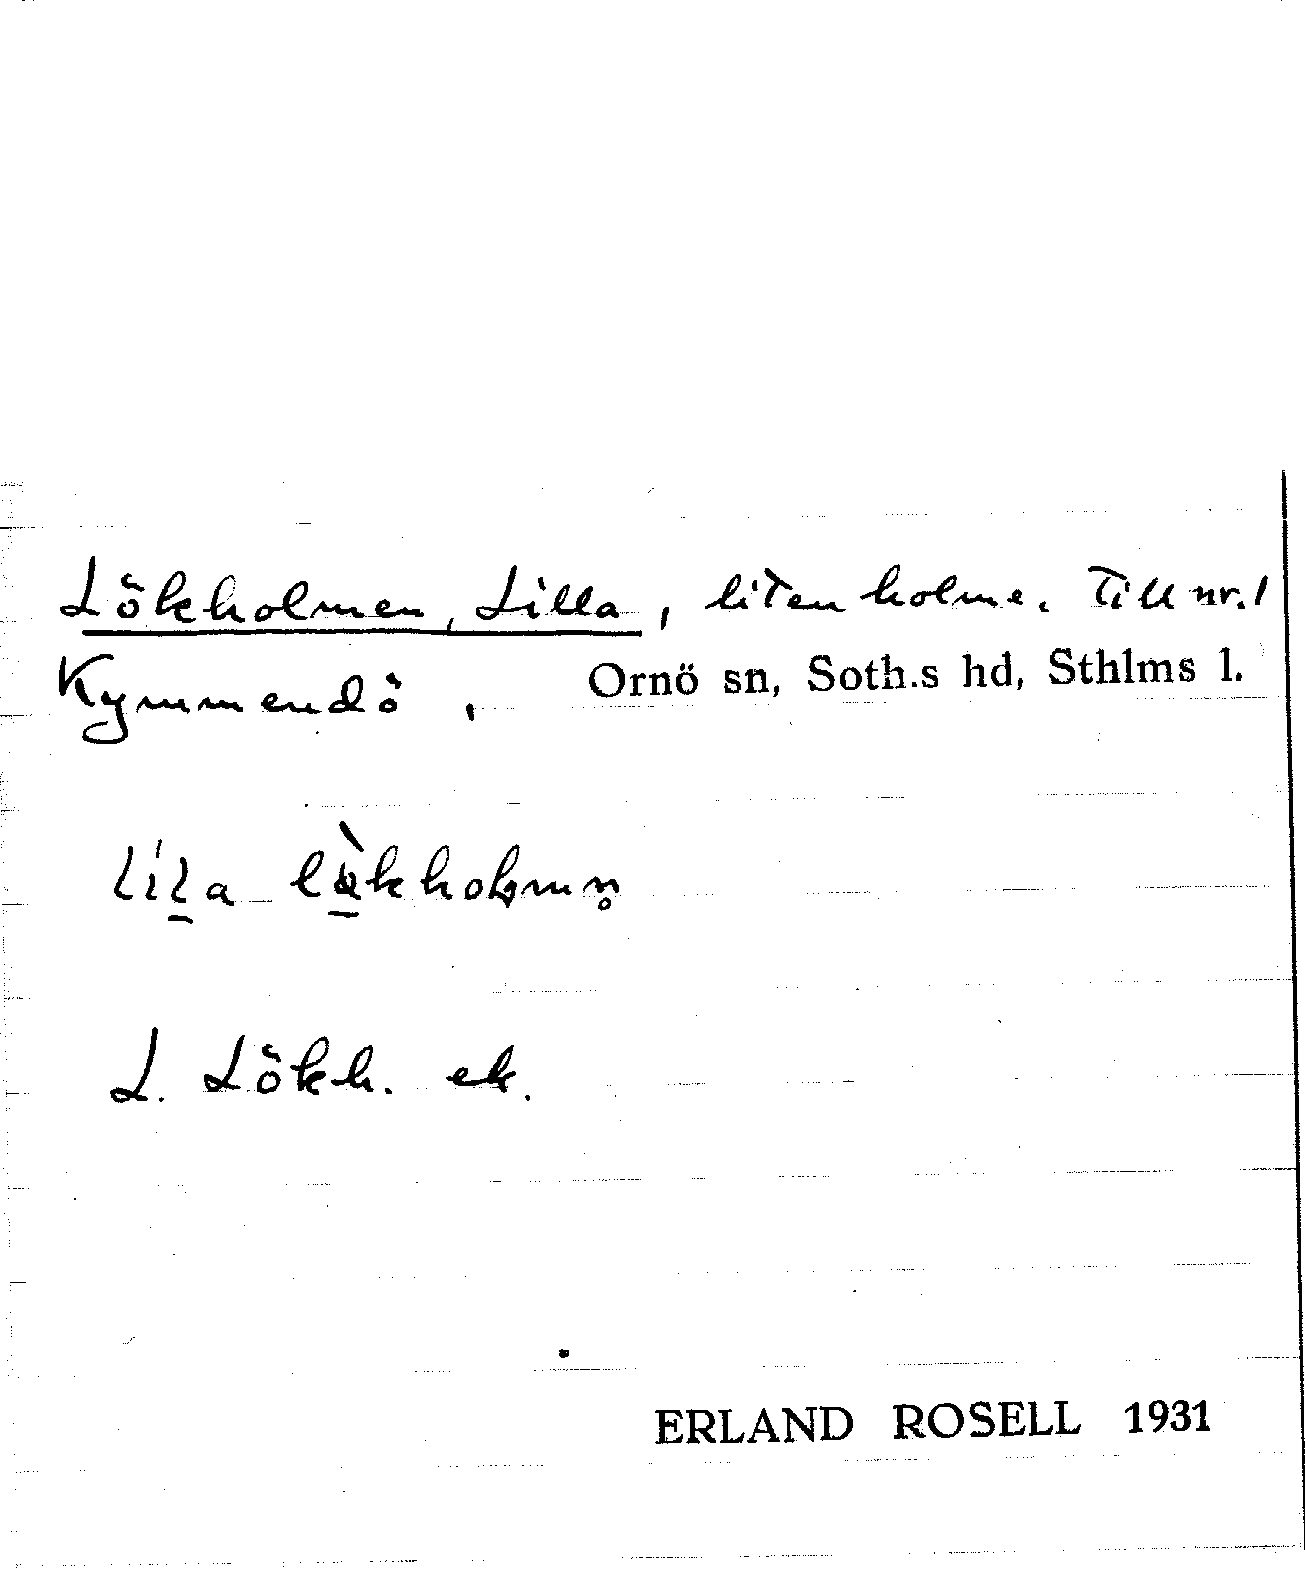 Lökholmen, Lilla, liten holme. Till nr. 1
Kymmendö, Ornö sn, Soth.s hd, Sthlms l.
L. Lökh. ek.
ERLAND ROSELL 1931